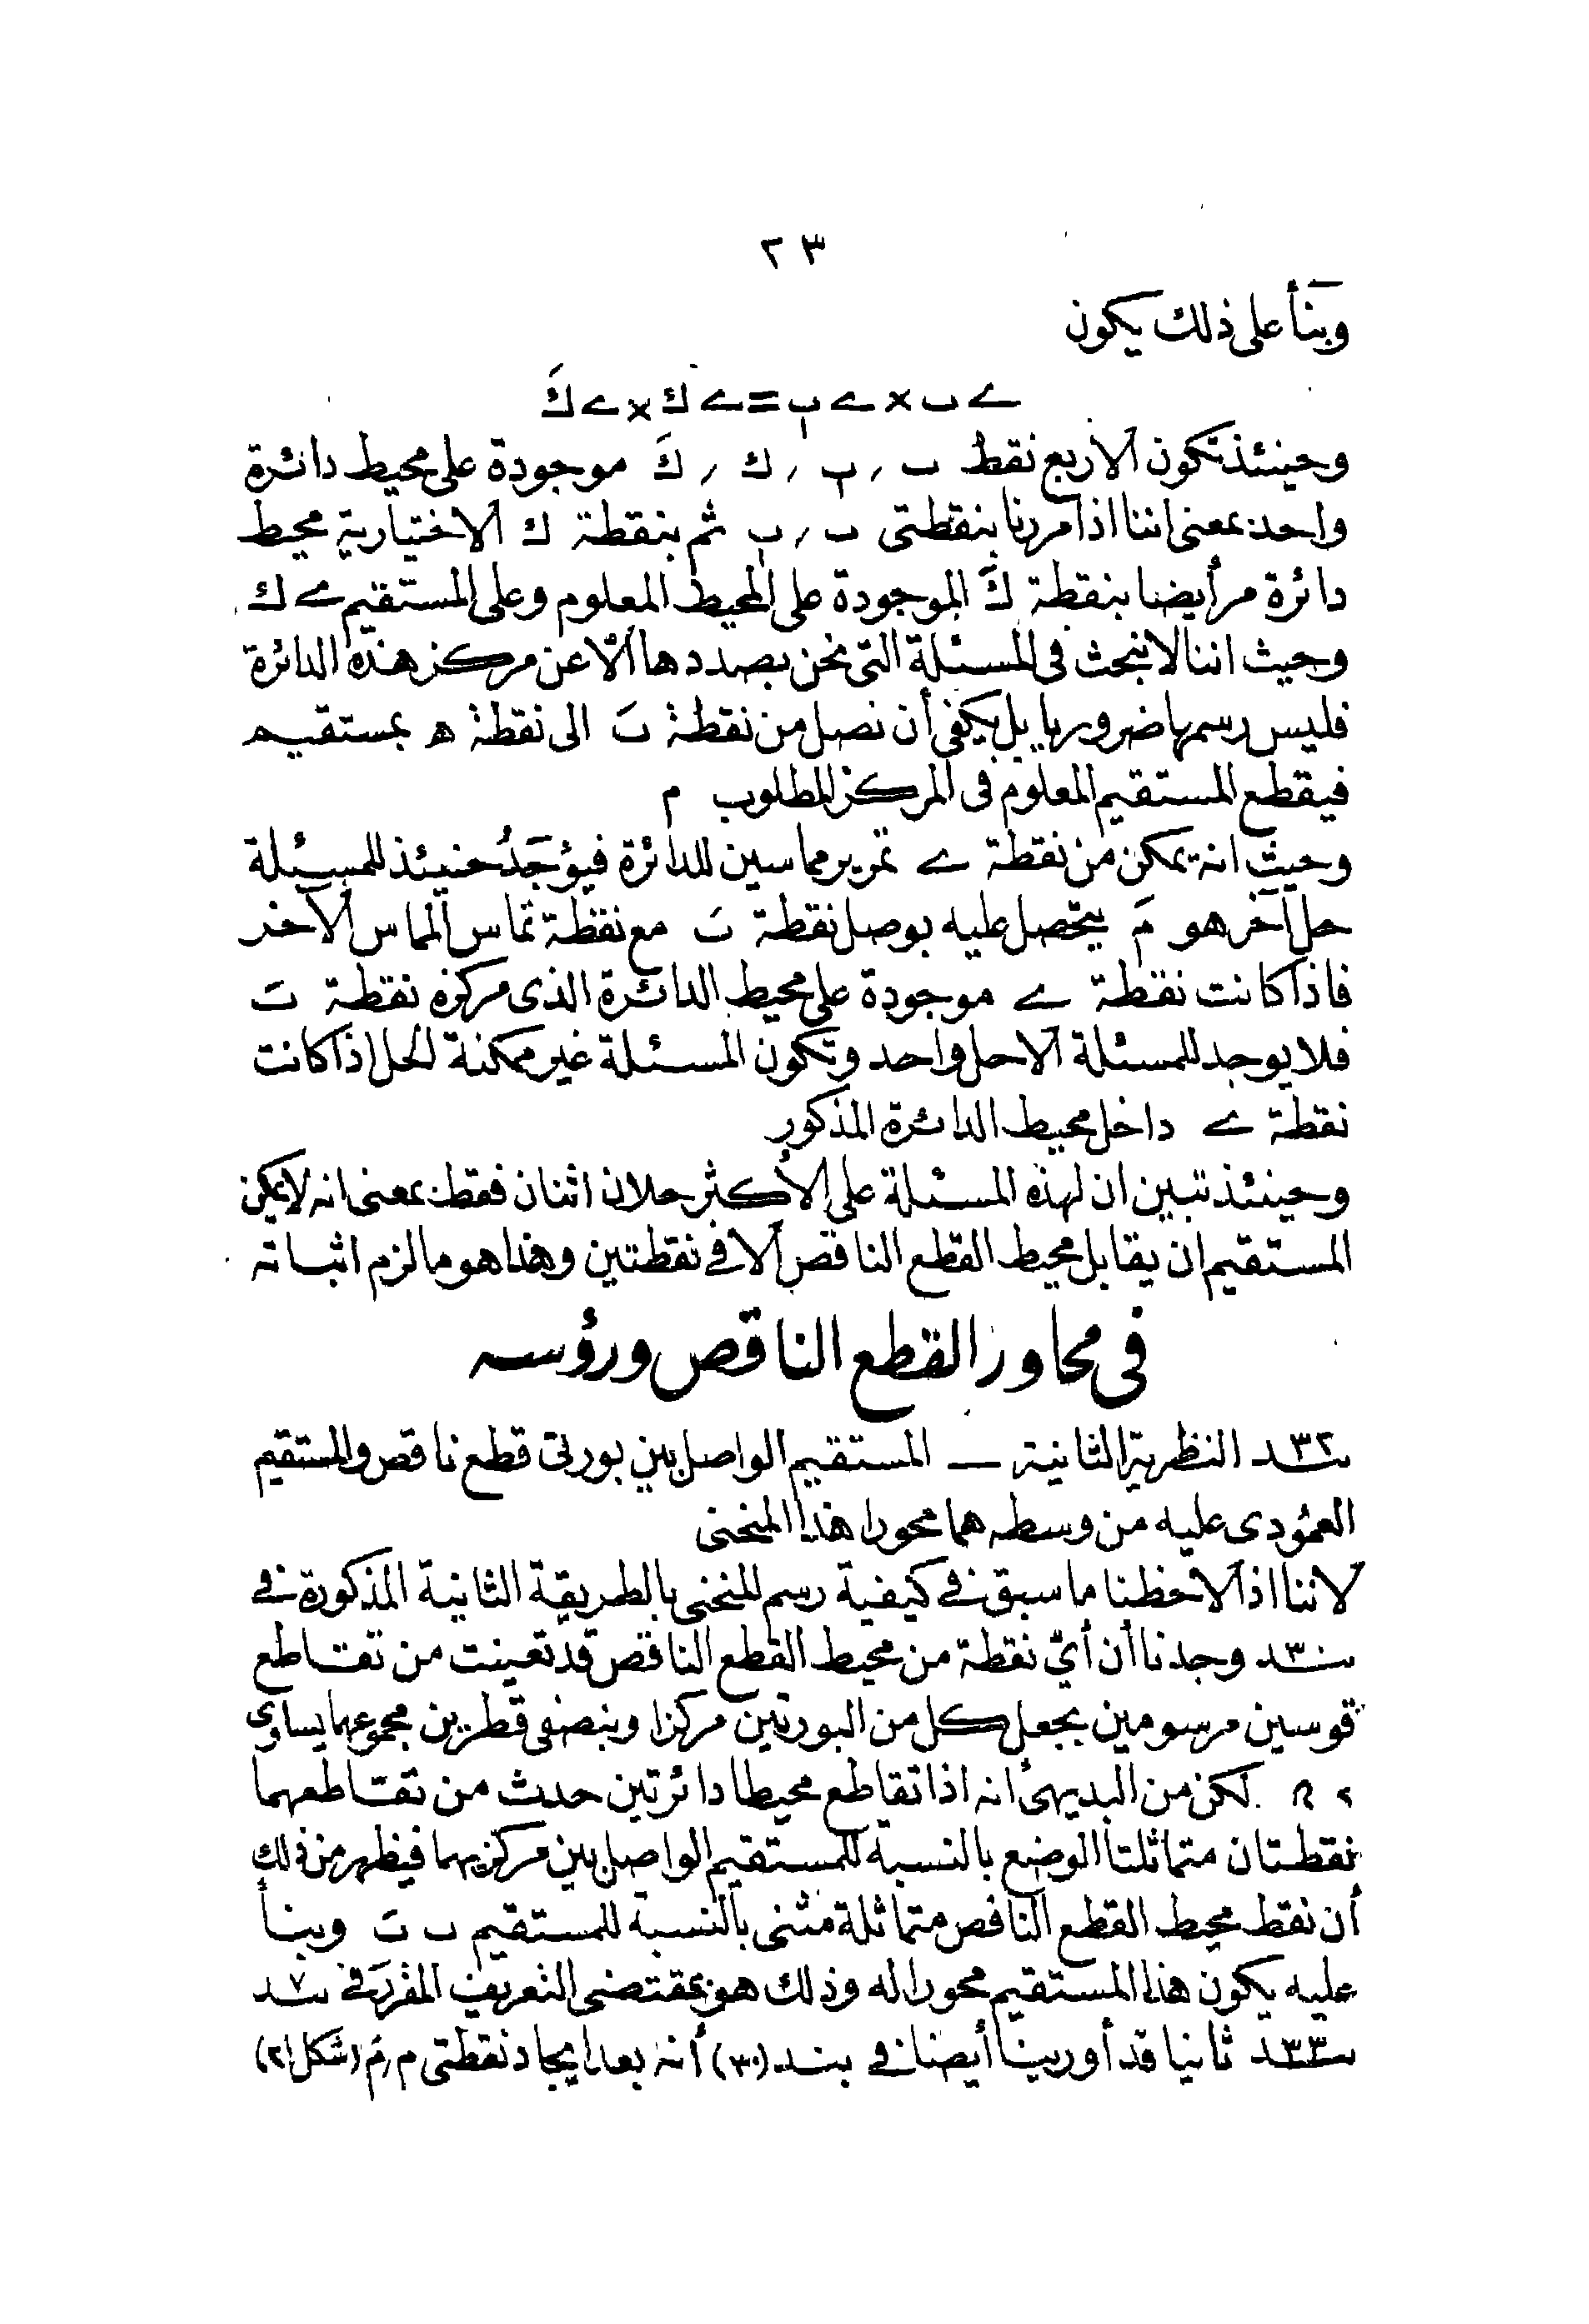 ٢٣
وبنأ على ذلك يكون
ے ب × ے بٖ = ے ك × ے كَ
وحينئذ تكون الاربع نقط ب , بٖ , ك , كَ موجودة على محيط دائرة
واحد بمعنى اننا اذا مررنا بنقطتى ب , بٖ ثم بنقطة ك الاختيارية محيط
دائرة مر أيضا بنقطة كَ الموجودة على المحيط المعلوم وعلى المستقيم ے ك
وحيث اننا لا نبحث فى المسئلة التى نحن بصددها الّا عن مركز هذه الدائرة
فليس رسمها ضروريا بل يكفى أن نصل من نقطة بَ الى نقطة ه بمستقيم
فيقطع المستقيم المعلوم فى المركز المطلوب م
وحيث انه يمكن من نقطة ے تمرير مماسين للدائرة فيؤجَدُ حنيئذ للمسئلة
حل آخر هو مَ يتحصل عليه بوصل نقطة بَ مع نقطة تماس المماس الآخر
فاذا كانت نقطة ے موجودة على محيط الدائرة الذى مركزه نقطة بَ
فلا يوجد للمسئلة الاحل واحد وتكون المسئلة غير ممكنة الحل اذا كانت
نقطة ے داخل محيط الدائرة المذكور
وحينئذ تبين ان لهذه المسئلة على الأكثر حلان اثنان فقط بمعنى انه لا يمكن
المستقيم ان يقابل محيط القطع الناقص الا فى نقطتين وهذا هو ما لزم اثباته
فى محاور القطع الناقص ورؤسه
٣٢ـند النظرية الثانية — المستقيم الواصل بين بورتى قطع ناقص والمستقيم
العمودى عليه من وسطه هما محورا هذا المنحنى
لاننا اذا لاحظنا ما سبق فى كيفية رسم المنحنى بالطريقة الثانية المذكورة فى
ـ٣٠ـند وجدنا أن أىّ نقطة من محيط القطع الناقص قد تعينت من تقاطع
قوسين مرسومين بجعل كل من البورتين مركزا وبنصفى قطرين مجموعهما يساوى
٢ ﺡ لكن من البديهى أنه اذا تقاطع محيطا دائرتين حدث من تقاطعهما
نقطتان متماثلتا الوضع بالنسبة للمستقيم الواصل بين مركزيهما فيظهر من ذلك
أن نقط محيط القطع الناقص متماثلة مثنى بالنسبة للمستقيم ب بَ وبنأ
عليه يكون هذا المستقيم محورا له وذلك هو بمقتضى التعريف المقرر فى ٧ـند
٣٣ـند ثانيا قد أورينا أيضا فى بند (٣٠) أنه بعد ايجاد نقطتى م , مَ (شكل ٢١)